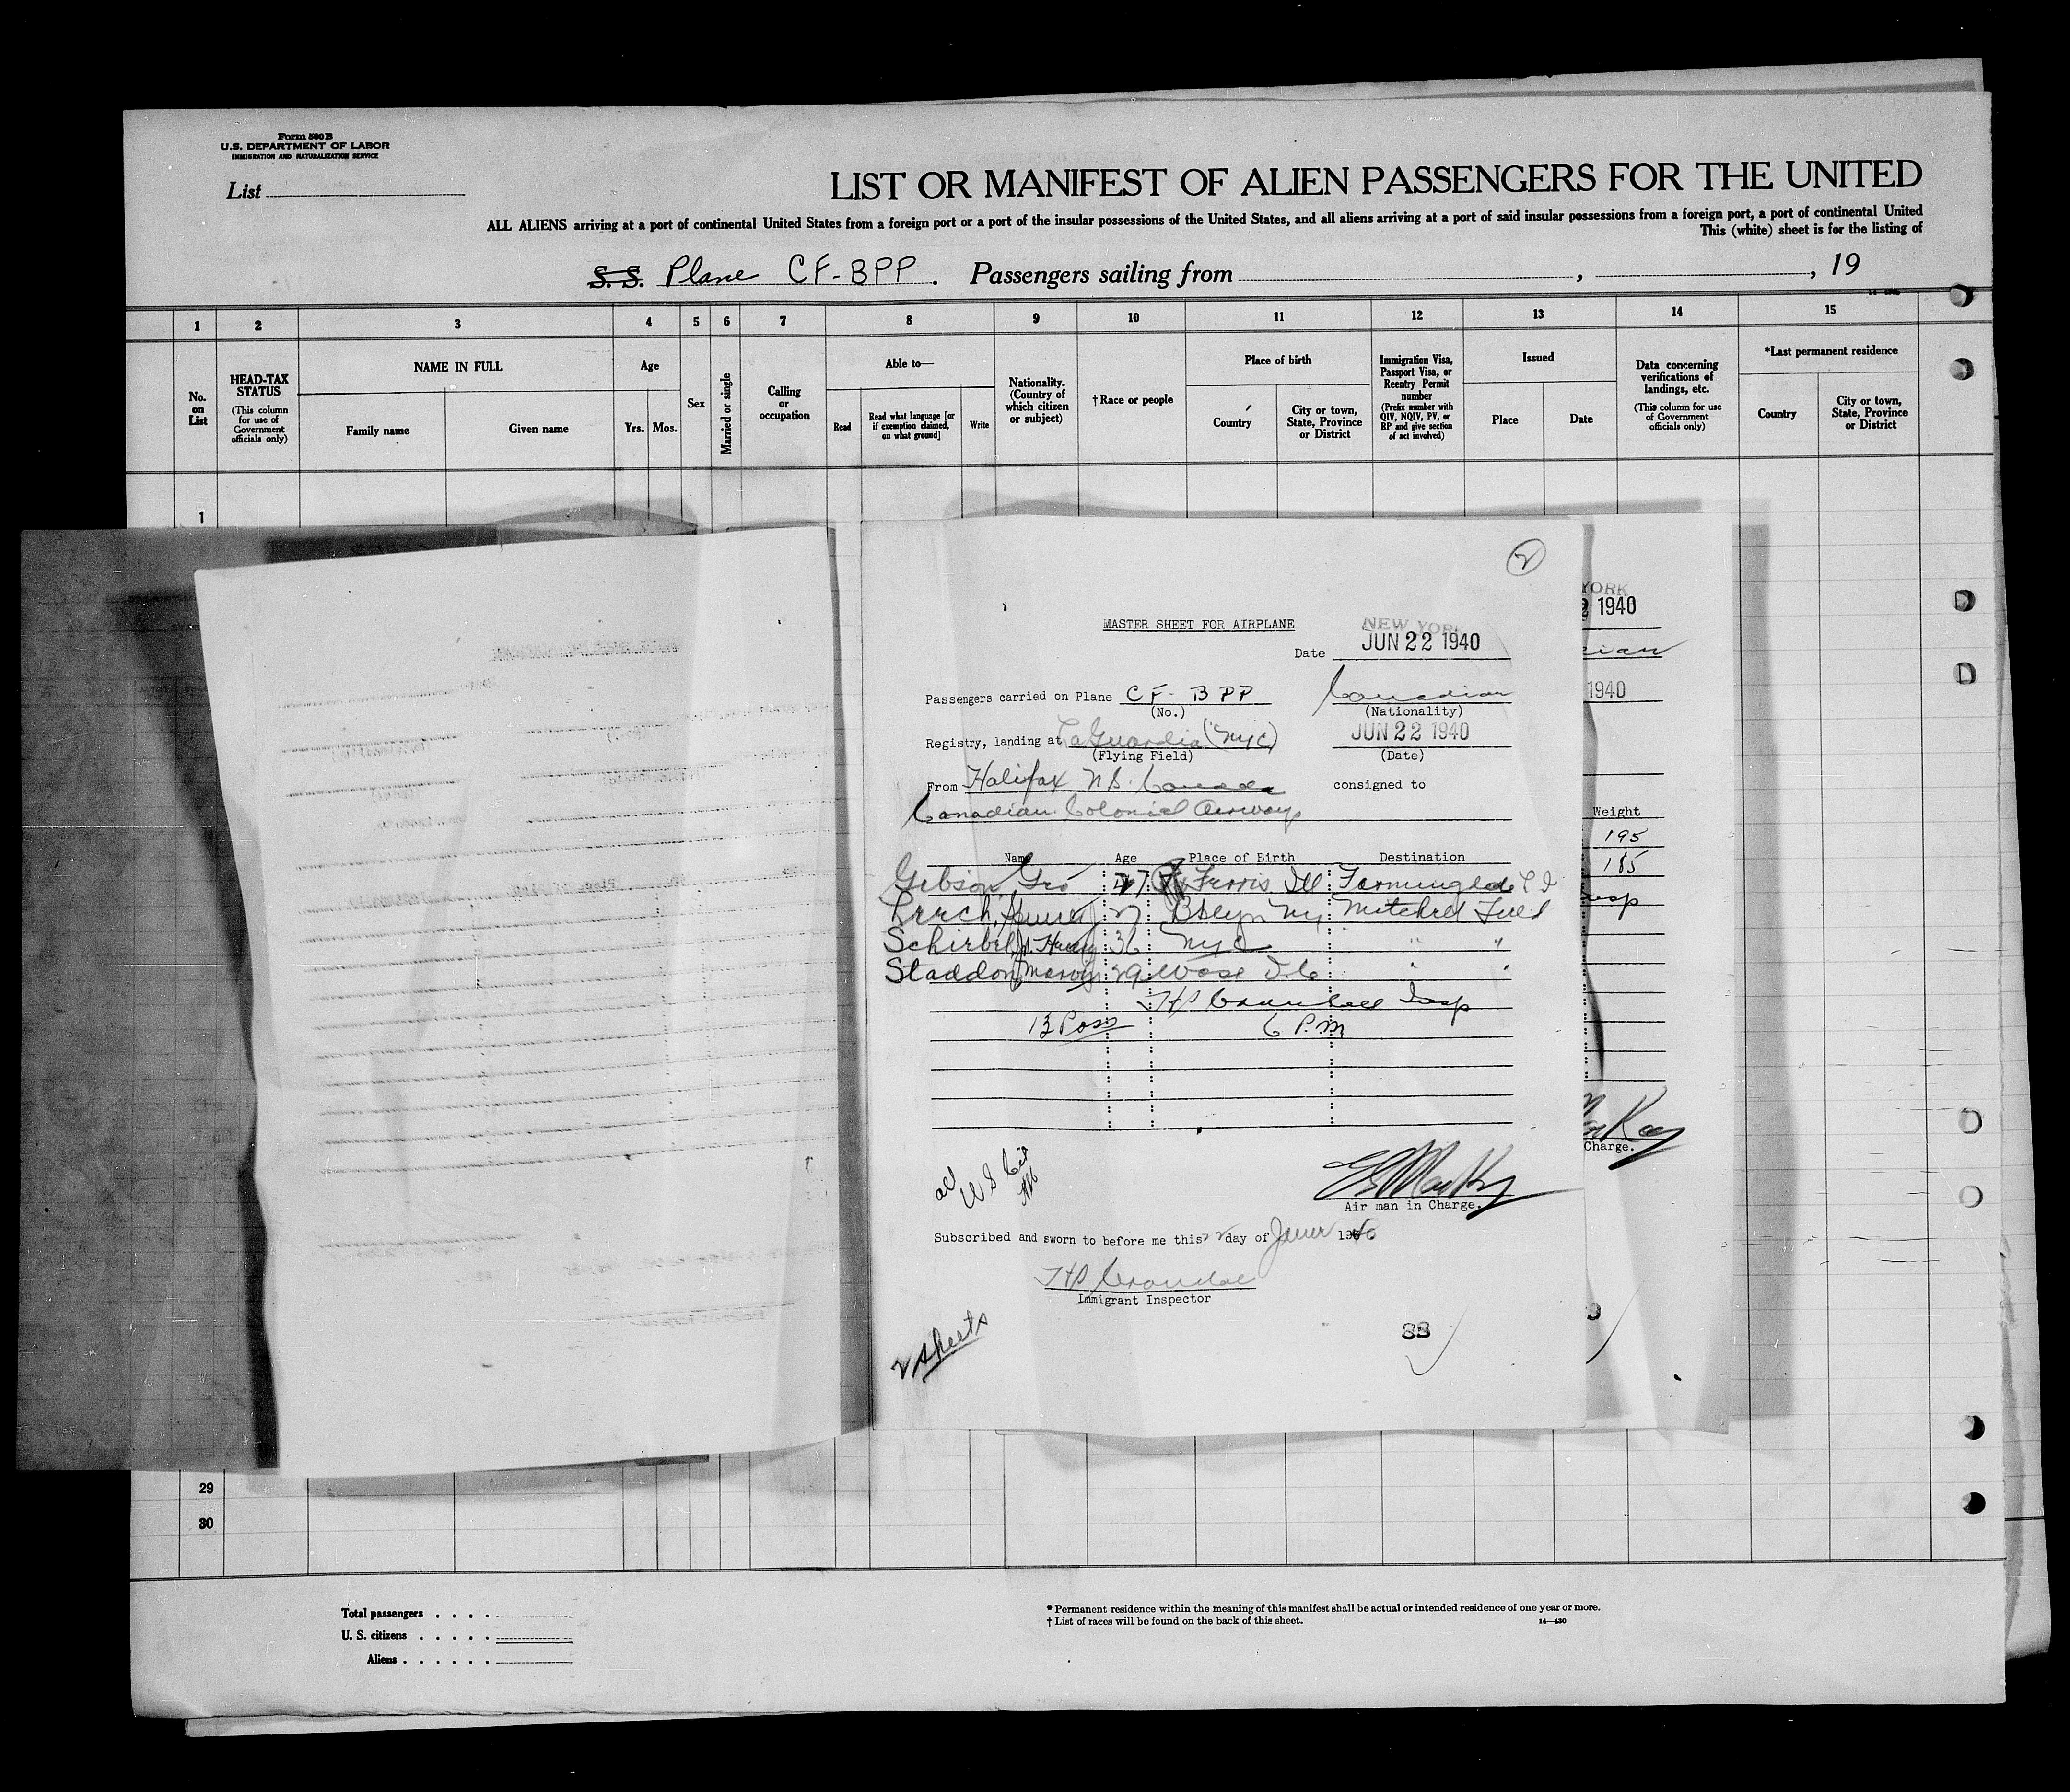 Form 500 B
U.S. DEPARTMENT OF LABOR
IMMIGRATION AND NATURALIZATION SERVICE
List
LIST OR MANIFEST OF ALIEN PASSENGERS FOR THE UNITED
ALL ALIENS arriving at a port of continental United States from a foreign port or a port of the insular possessions of the United States, and all aliens arriving at a port of said insular possessions from a foreign port, a port of continental United
This (white) sheet is for the listing of
S. S. Plane CF-BPP. Passengers sailing from , , 19
1 2 3 4 5 6 7 8 9 10 11 12 13 14 15
No. on List
HEAD-TAX STATUS
(This column for use of Government officials only)
NAME IN FULL
Family name Given name
Age
Yrs. Mos.
Sex
Married or single
Calling or occupation
Able to—
Read
Read what language [or if exemption claimed, on what ground]
Write
Nationality. (Country of which citizen or subject)
† Race or people
Place of birth
Country
City or town, State, Province or District
Immigration Visa, Passport Visa, or Reentry Permit number
(Prefix number with QIV, NQIV, PV, or RP and give section of act involved)
Issued
Place Date
Data concerning verifications of landings, etc.
(This column for use of Government officials only)
*Last permanent residence
Country
City or town, State, Province or District
1
2
MASTER SHEET FOR AIRPLANE
NEW YORK
Date JUN 22 1940
Passengers carried on Plane CF-BPP Canadian
(No.) (Nationality)
Registry, landing at LaGuardia (NYC) JUN 22 1940
(Flying Field) (Date)
From Halifax N.S. Canada consigned to
Canadian Colonial Airways
Name Age Place of Birth Destination
Gibson, Geo 47 Ferris Ill Farmingdale L I
Lerch, 27 Bklyn NY Mitchel Field
Schirbel, 36 NYC " "
Staddon, 29 Wash D.C " "
HP Crandall Insp
13 Pass 6 P.M
all U S Cit
Air man in Charge.
Subscribed and sworn to before me this 22 day of June 1940
HP Crandall
Immigrant Inspector
2 sheets
33
YORK
2 1940
1940
Weight
195
185
Insp
MacKay
Charge.
3
29
30
Total passengers . . . .
U. S. citizens . . . . .
Aliens . . . . . .
* Permanent residence within the meaning of this manifest shall be actual or intended residence of one year or more.
† List of races will be found on the back of this sheet.
14—430